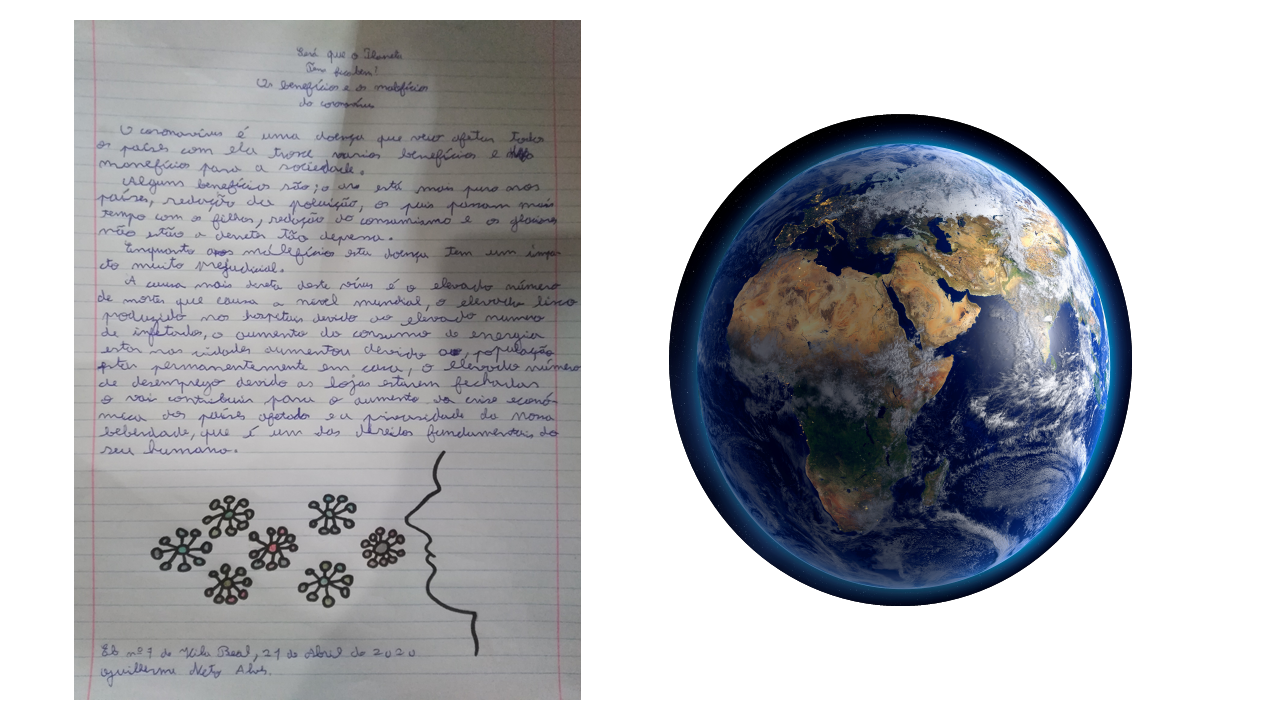 Será que o Planeta
Tem ficou bem?
Os benefícios e os malefícios
do coronavírus
O coronavírus é uma doença que veio afetar todos
os países com ela troxe varios benefícios e
manefícios para a sociedade.
Alguns benefícios são; o ar está mais puro nos
países, redução da poluição, os pais passam mais
tempo com o filhos, redução do consumismo e os glaciares
não estão a derreter tão depresa.
Enquanto aos malefícios esta doença tem um impa-
cto muito prejudicial.
A causa mais direta deste vírus é o elevado número
de mortes que causa a nível mundial, o elevado lixo
produzido nos hospitais devido ao elevado numero
de infetados, o aumento do consumo de energia
estar nas cidades aumentou devido a população
estar permanentemente em casa, o elevado número
de desemprego devido as lojas estarem fechadas
o vai contribuir para o aumento da crise econó-
mica dos países afetado e a privacidade da nossa
leberdade, que é um dos direitos fundamentais do
seu humano.
Eb nº 7 de Vila Real, 21 de Abril de 2020
Guilherme Neto Alves.